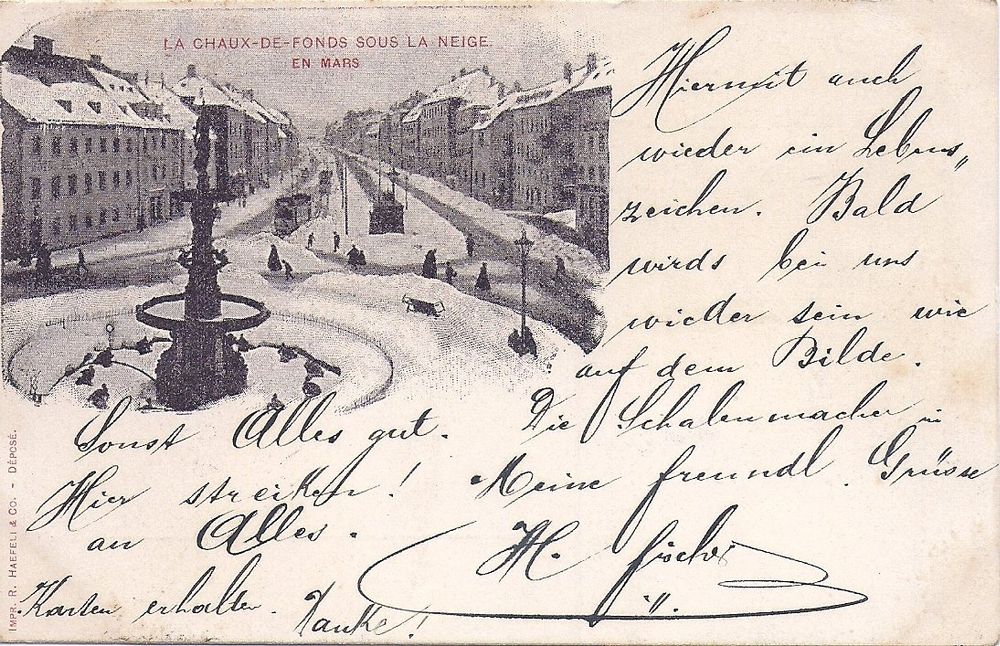 LA CHAUX-DE-FONDS SOUS LA NEIGE.
EN MARS
Hiermit auch
wieder ein Lebens„
zeichen. Bald
wirds bei uns
wieder sein wie
auf dem Bilde.
Sonst Alles gut. Die Schalenmacher in
Hier streiken! Meine freundl. Grüsse
an Alles.
H.
Karten erhalten. Danke!
IMPR. R. HAEFELI & CO. - DÉPOSÉ.